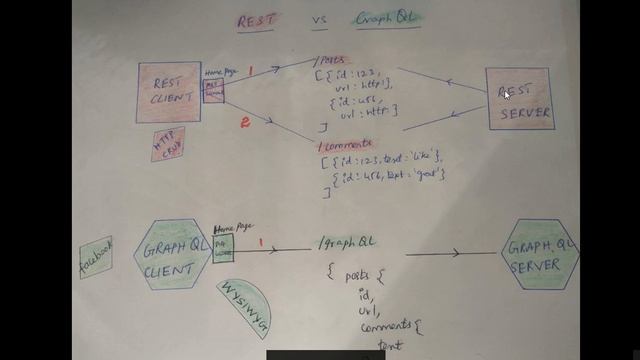 REST vs GraphQL
/Posts
Home Page
1
REST
CLIENT
[ { id : 123,
url : http },
{ id : 456,
url : http }
]
2
REST
SERVER
HTTP
CRUD
/comments
[ { id : 123, text = 'like' },
{ id : 456, text = 'great' }
]
Home Page
1
facebook
GRAPH QL
CLIENT
/graphQL
GRAPH QL
SERVER
WYSIWYG
{ posts {
id,
url,
comments {
text